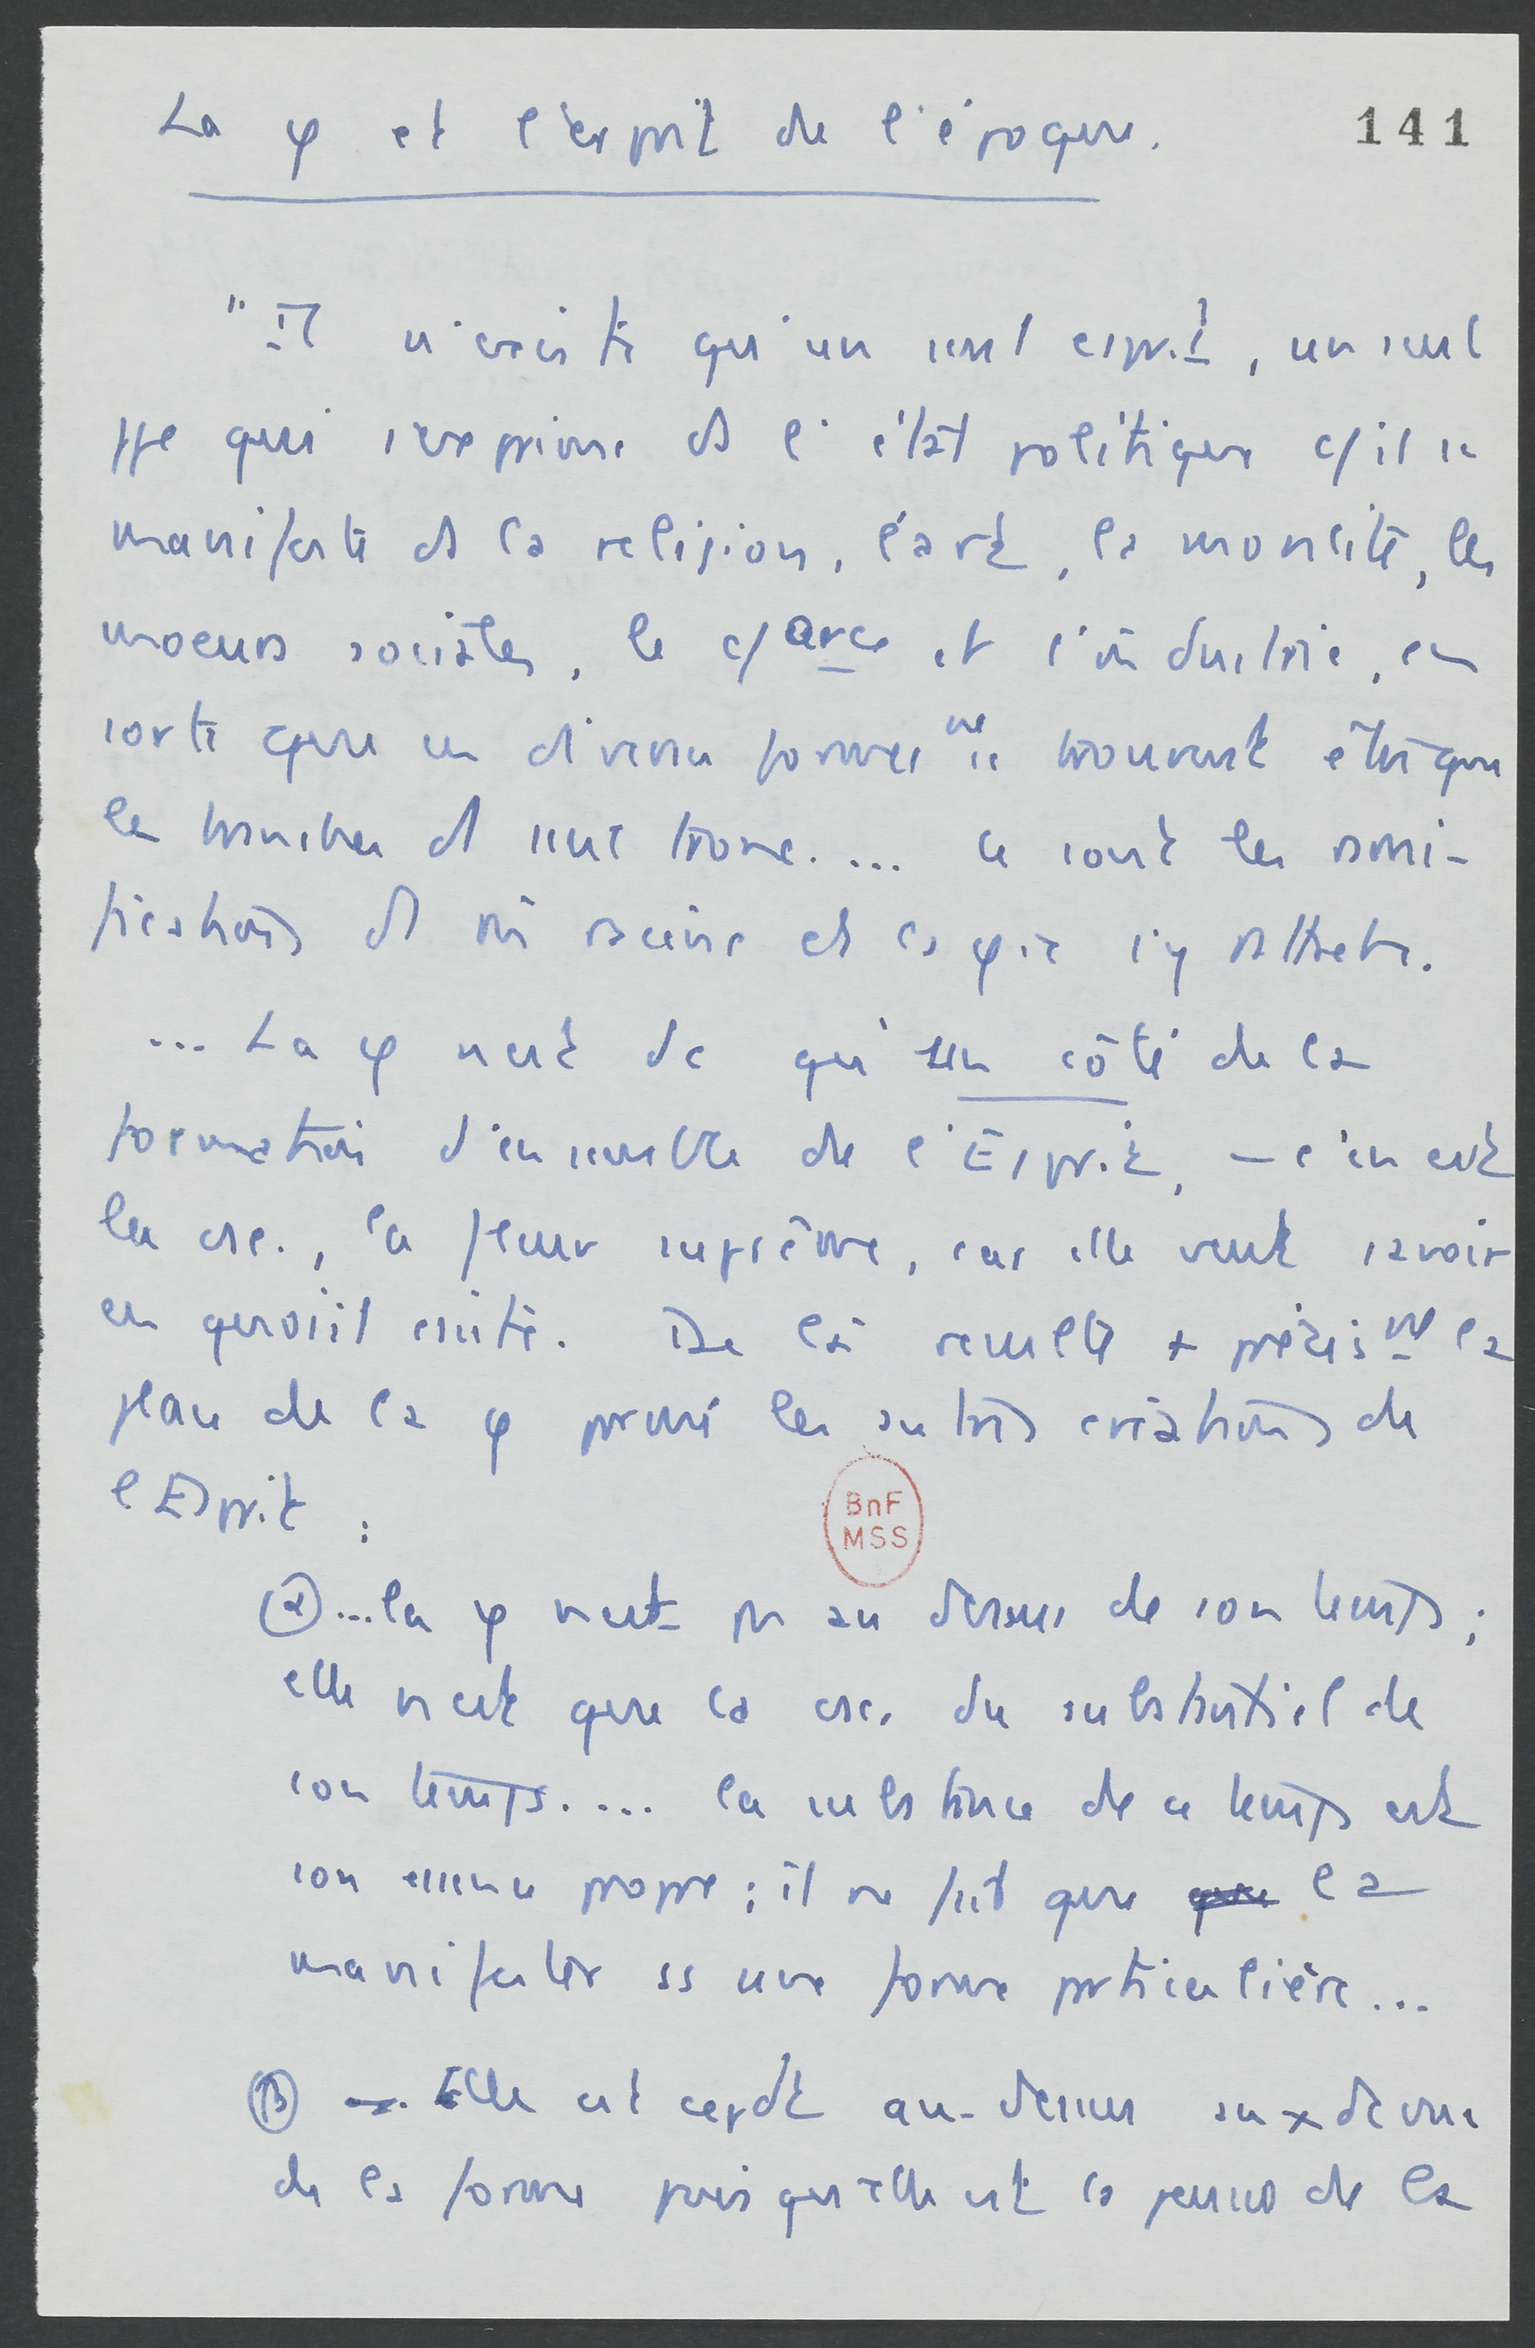 La φ et l'esprit de l'époque.
141
"Il n'existe qu'un seul esprit, un seul
ppe qui s'exprime ds l'état politique c/ il se
manifeste ds la religion, l'art, la moralité, les
moeurs sociales, le c/arce et l'industrie, en
sorte que ces diverses formes ne se trouvent être que
les branches d'1 seul tronc.... ce sont les rami-
fications d'1 mê racine et la φie s'y rattache.
... La φ n'est dc qu'un côté de la
formation d'ensemble de l'Esprit, – c'en est
la csc., la fleur suprême, car elle veut savoir
en quoi il existe. De là résulte + précismt la
place de la φ parmi les autres créations de
l'Esprit :
BnF
MSS
(α) ...la φ n'est pas au dessus de son temps ;
elle n'est que la csc. du substantiel de
son temps.... la substance de ce temps est
son essence propre ; il ne fait que la
manifester ss une forme particulière...
(β) Elle est cepdt au-dessus au x de vue
de la forme puisqu'elle est la pensée de la